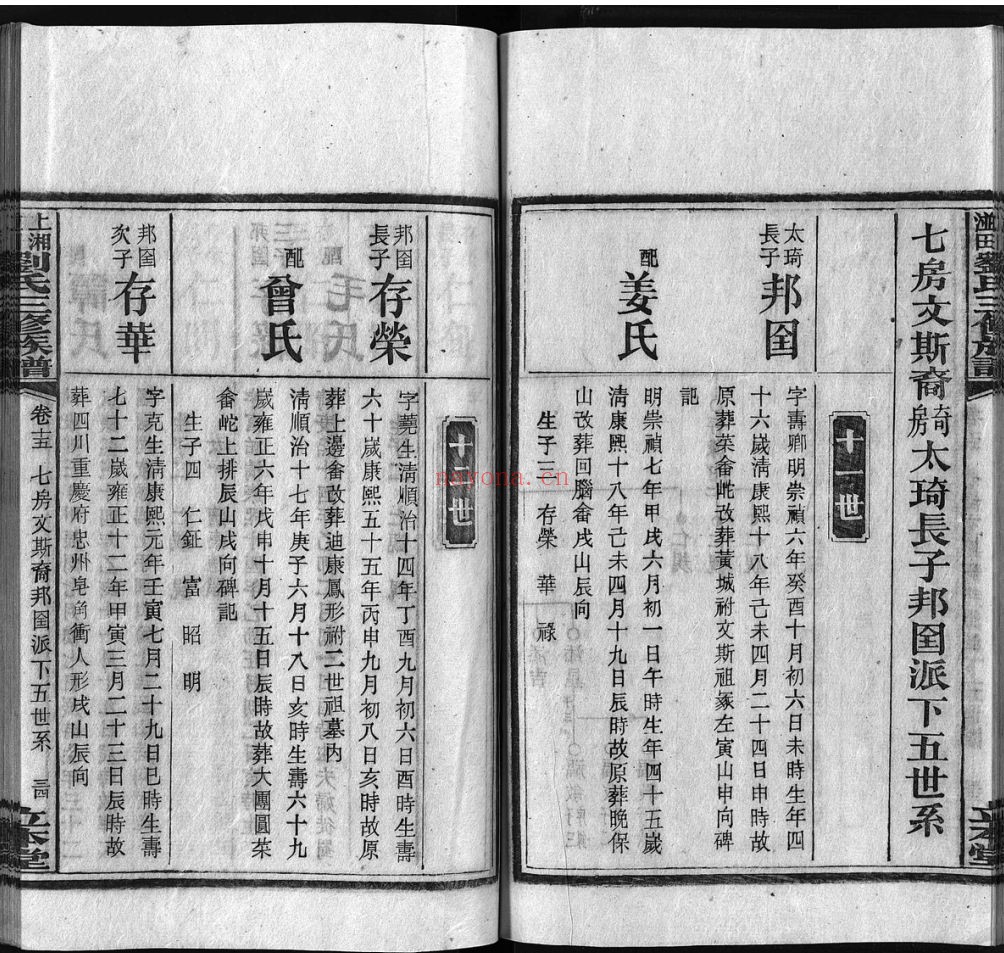 七房文斯裔琦房太琦長子邦圉派下五世系
十一世
太琦長子 邦圉
字壽卿明崇禎六年癸酉十月初六日未時生年四
十六歲清康熙十八年己未四月二十四日申時故
原葬菜畬屺改葬黃城祔文斯祖冢左寅山申向碑
記
配 姜氏
明崇禎七年甲戌六月初一日午時生年四十五歲
清康熙十八年己未四月十九日辰時故原葬晚保
山改葬回腦畬戌山辰向
生子三 存榮 華 祿
十二世
邦圉長子 存榮
字堯生清順治十四年丁酉九月初六日酉時生壽
六十歲康熙五十五年丙申九月初八日亥時故原
葬上邊畬改葬迪康鳳形祔二世祖墓內
配 曾氏
清順治十七年庚子六月十八日亥時生壽六十九
歲雍正六年戊申十月十五日辰時故葬大團圓菜
畬屺上排辰山戌向碑記
生子四 仁鉦 富 昭 明
邦圉次子 存華
字克生清康熙元年壬寅七月二十九日巳時生壽
七十二歲雍正十二年甲寅三月二十三日辰時故
葬四川重慶府忠州皂角衝人形戌山辰向
上湘 劉氏三修族譜 卷十五 七房文斯裔邦圉派下五世系 三四
nayona.cn